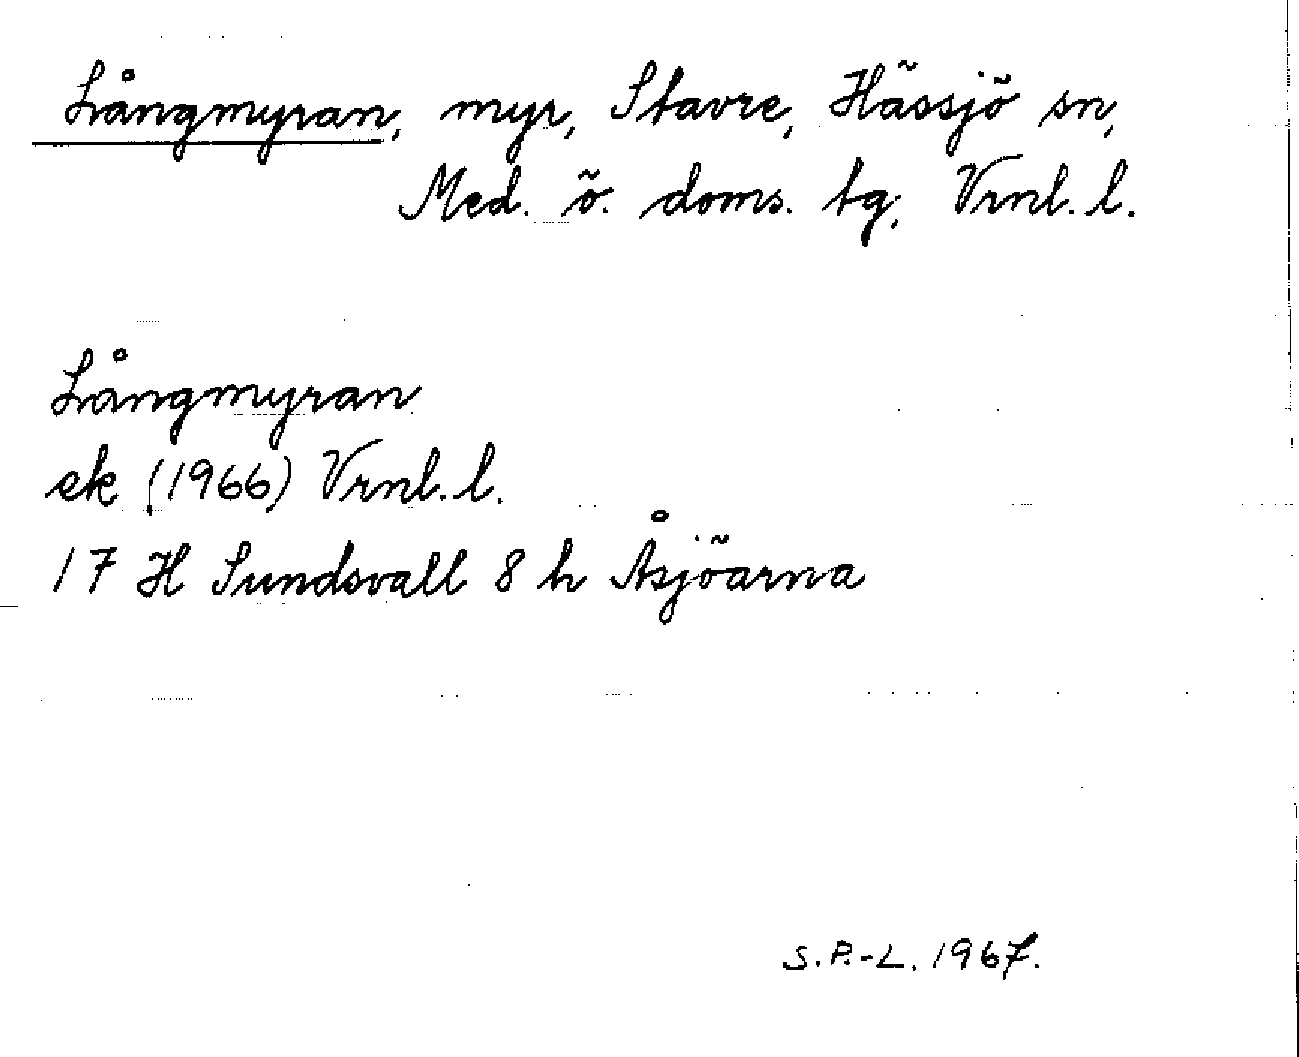 Långmyran, myr, Stavre, Hässjö sn,
Med. ö. doms. tg, Vrnl. l.
Långmyran
ek (1966) Vrnl. l.
17 H Sundsvall 8 h Åsjöarna
S.P.-L. 1967.